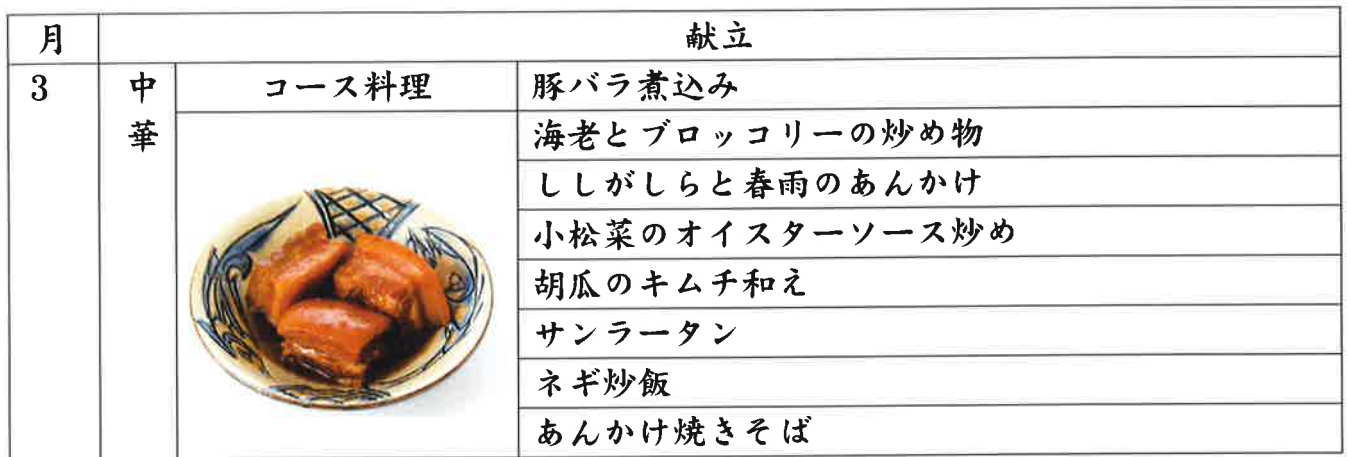 月 献立
3 中華 コース料理 豚バラ煮込み
海老とブロッコリーの炒め物
ししがしらと春雨のあんかけ
小松菜のオイスターソース炒め
胡瓜のキムチ和え
サンラータン
ネギ炒飯
あんかけ焼きそば